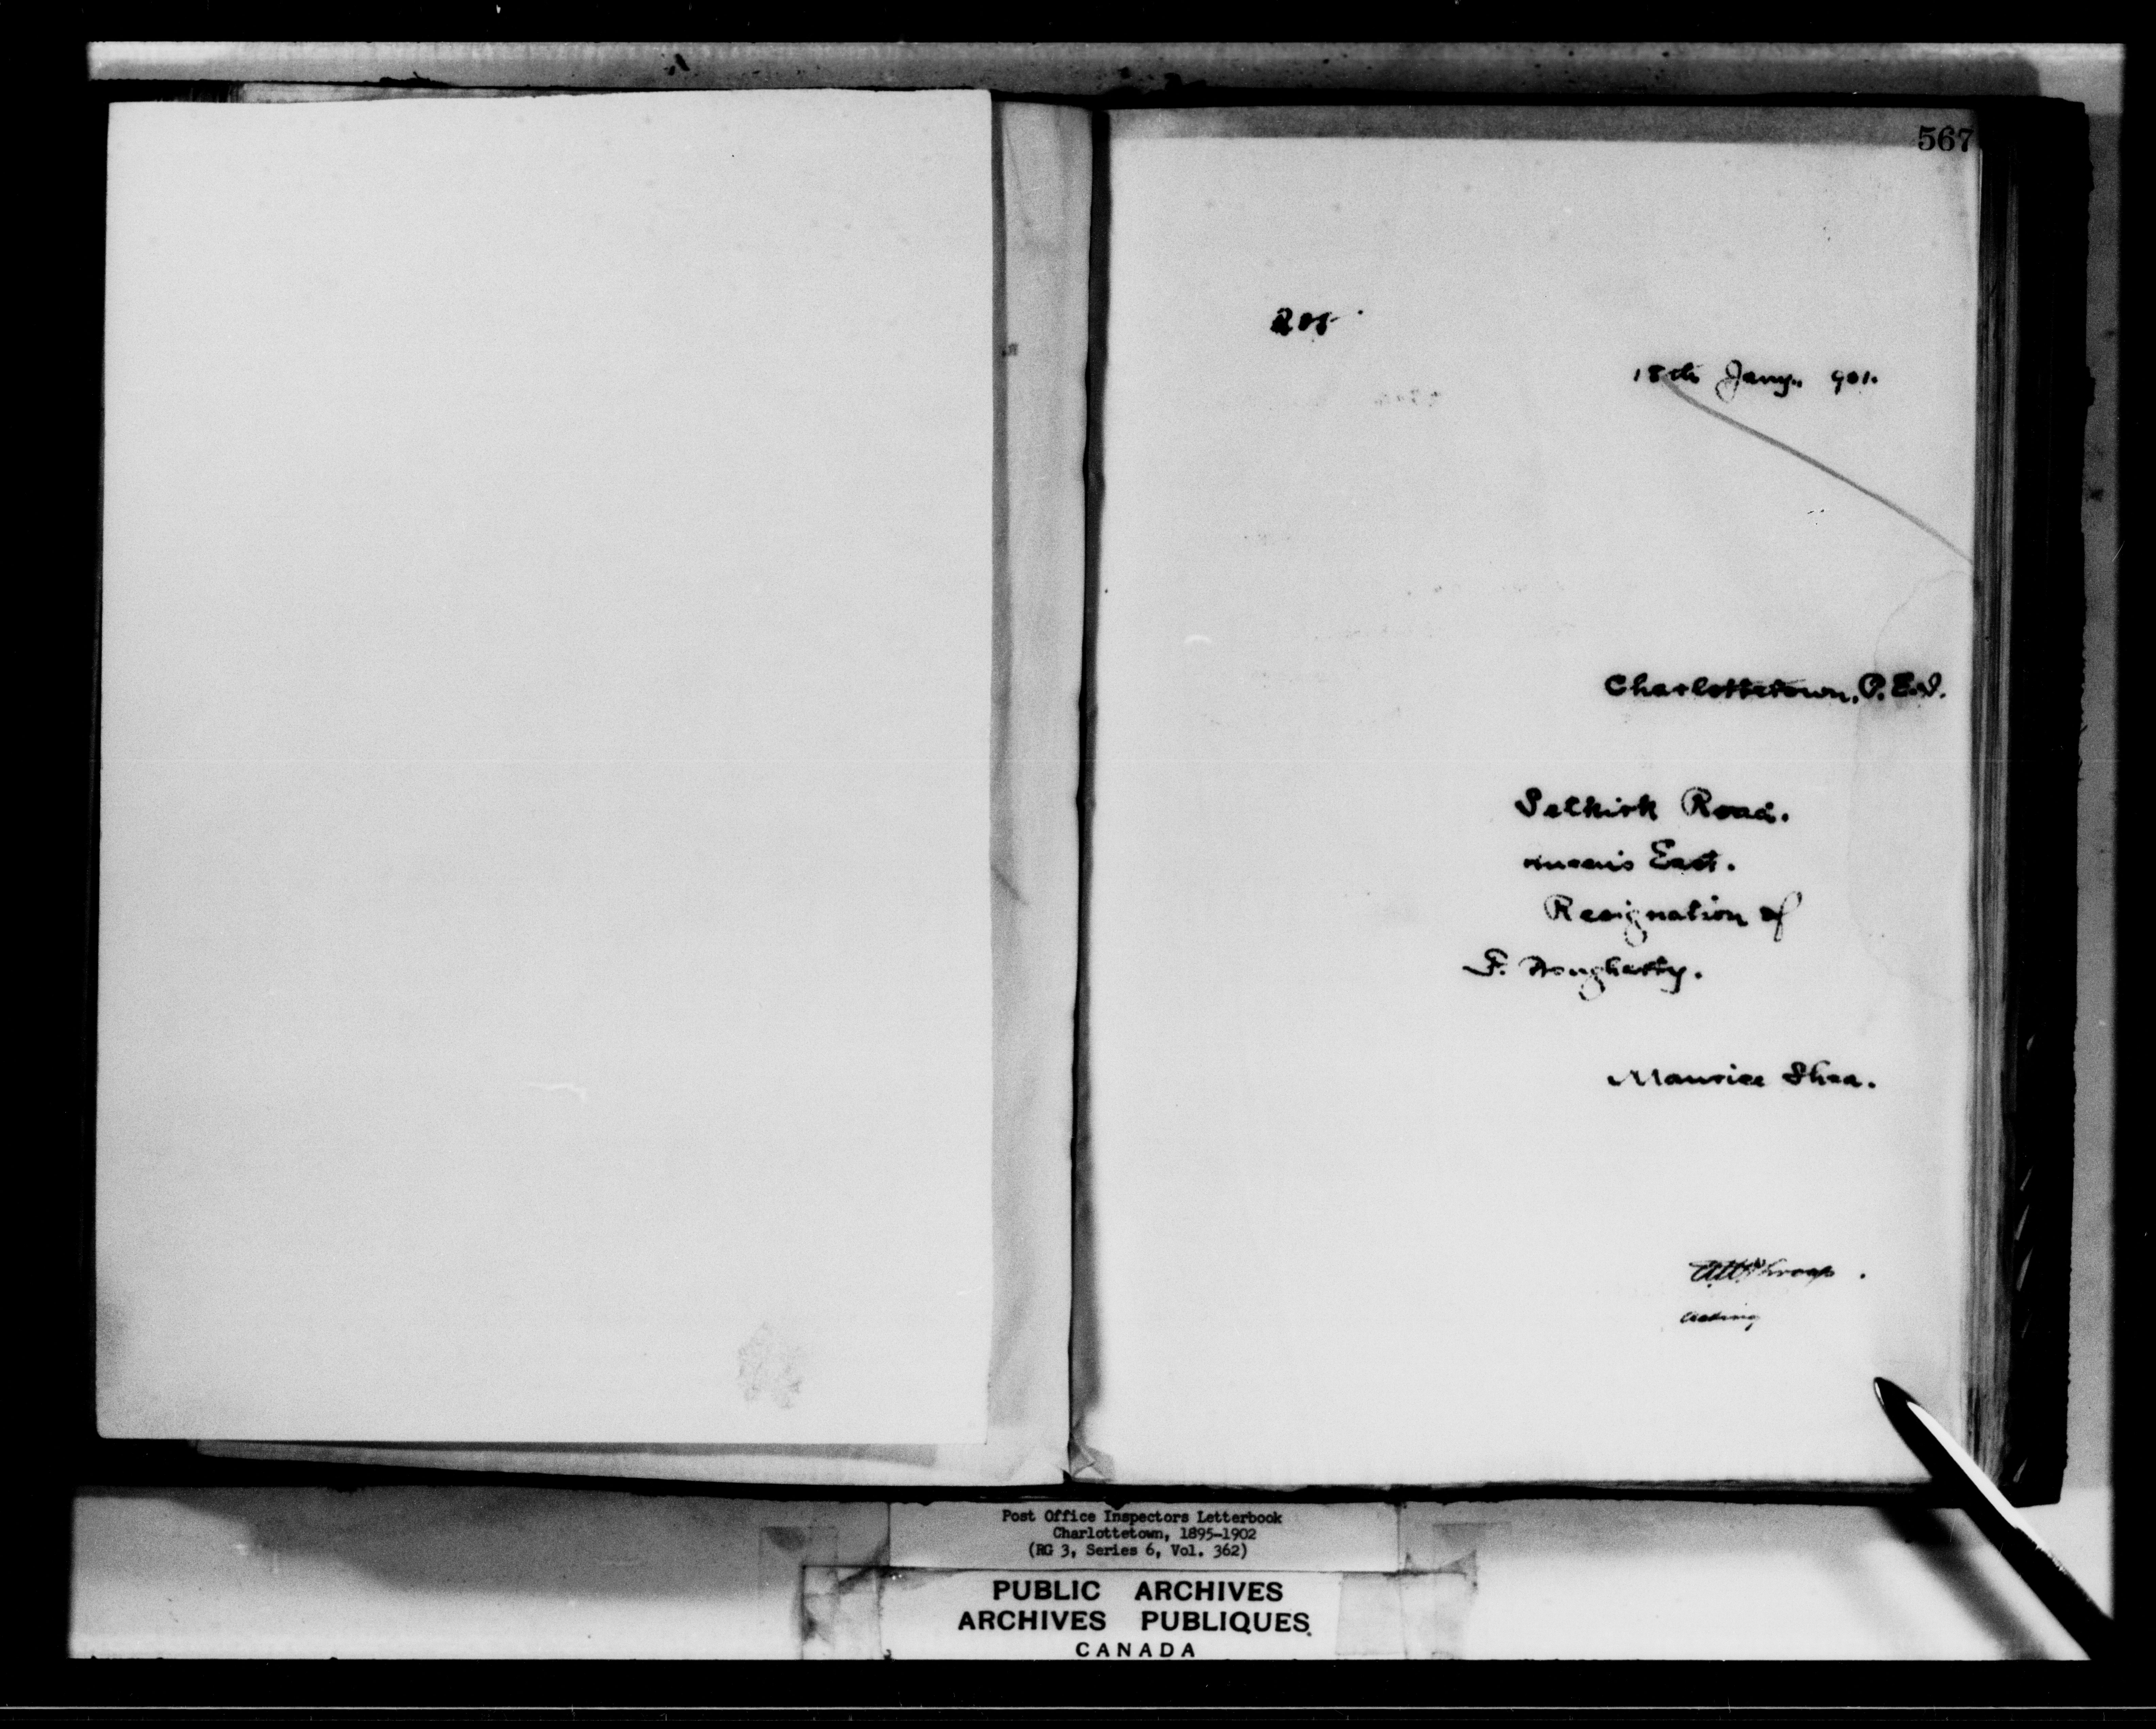 567
18th Jany. 901.
Charlottetown, P.E.I.
Selkirk Road.
East.
Resignation of
F. Dougherty.
Maurice Shea.
Acting
Post Office Inspectors Letterbook
Charlottetown, 1895-1902
(RG 3, Series 6, Vol. 362)
PUBLIC ARCHIVES
ARCHIVES PUBLIQUES
CANADA